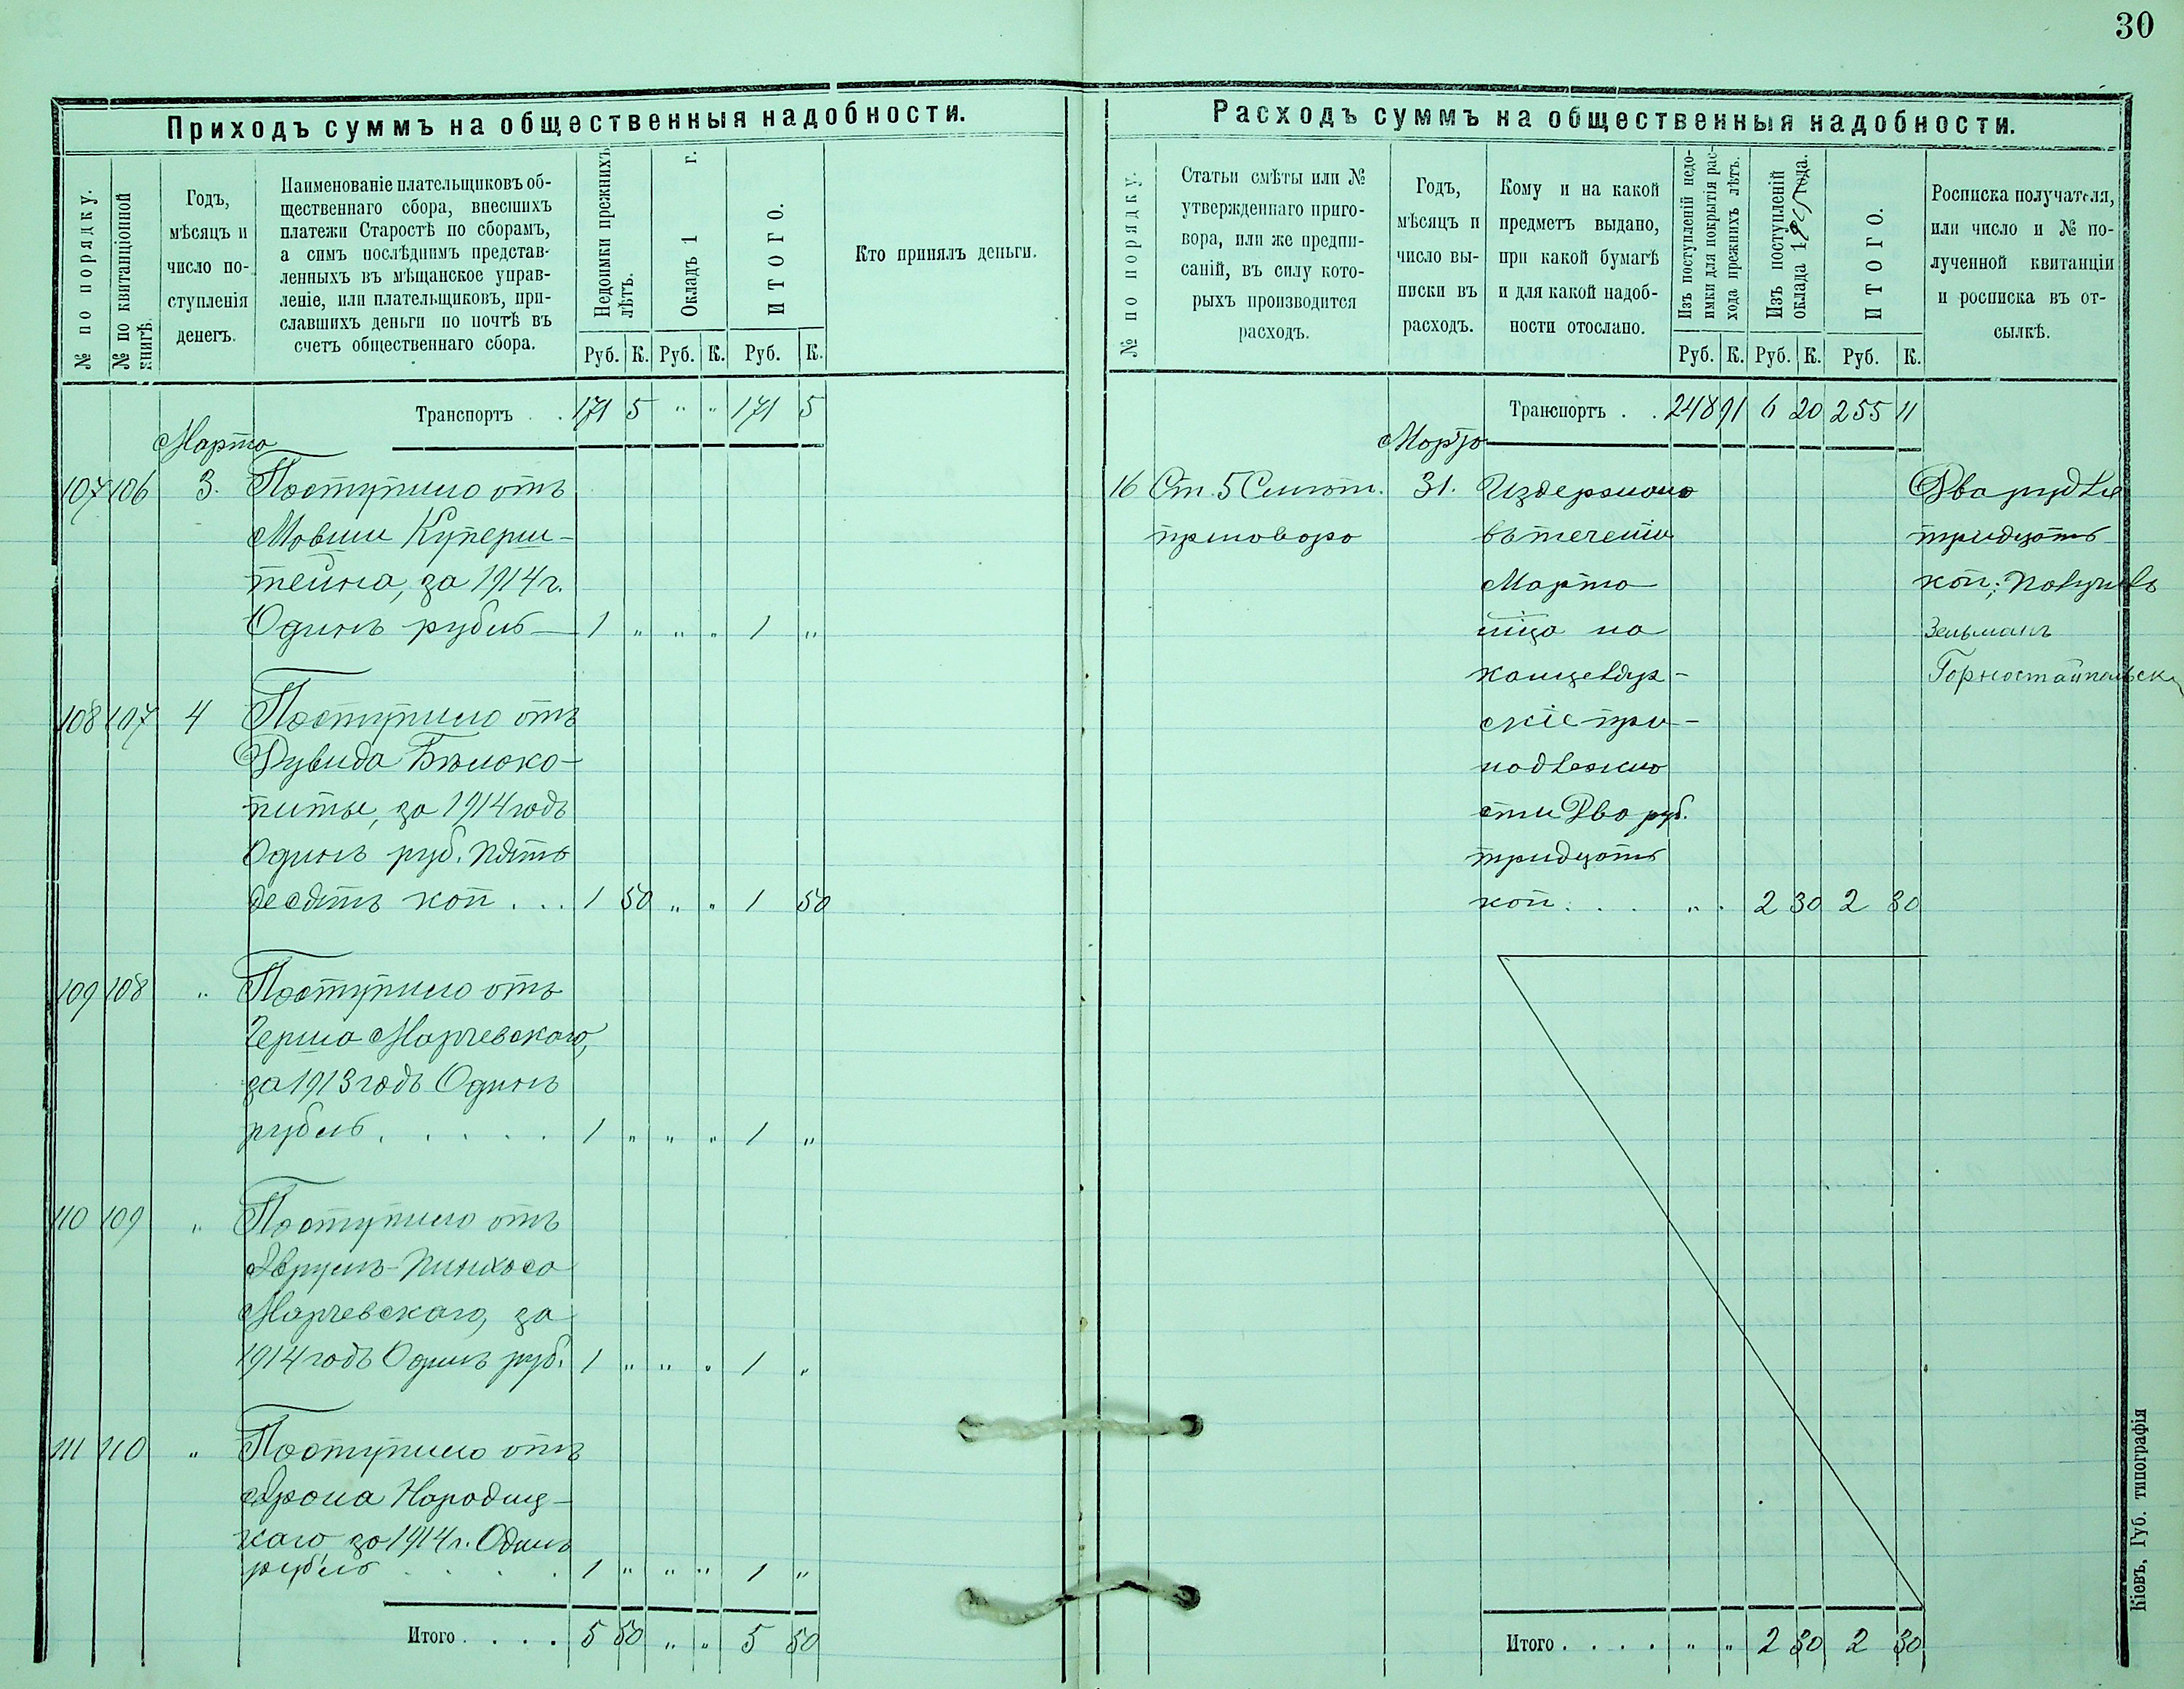 30
Приходъ суммъ на общественныя надобности.
№ по порядку.
№ по квитанціонной
книгѣ.
Годъ,
мѣсяцъ и
число по-
ступленія
денегъ.
Наименованіе плательщиковъ об-
щественнаго сбора, внесшихъ
платежи Старостѣ по сборамъ,
а симъ послѣднимъ представ-
ленныхъ въ мѣщанское управ-
леніе, или плательщиковъ, при-
славшихъ деньги по почтѣ въ
счетъ общественнаго сбора.
Недоимки прежнихъ
лѣтъ.
Окладъ 1 г.
ИТОГО.
Кто принялъ деньги.
Руб. К. Руб. К. Руб. К.
Транспортъ . . 171 5 " " 171 5
Марта
107 106 3. Поступило отъ
Мовши Куперш-
тейна, за 1914 г.
Одинъ рубль — 1 " " " 1 "
108 107 4 Поступило отъ
Дувида Бѣлоко-
питы, за 1914 годъ
Одинъ руб. пять
десятъ коп . . . 1 50 " " 1 50
109 108 " Поступило отъ
Герша Марчевскаго,
за 1913 годъ Одинъ
рубль . . . . . 1 " " " 1 "
110 109 " Поступило отъ
Аврумъ-Пинхоса
Марчевскаго, за
1914 годъ Одинъ руб. 1 " " " 1 "
111 110 " Поступило отъ
Арона Народиц-
каго за 1914 г. Одинъ
рубль . . . . 1 " " " 1 "
Итого . . . . 5 50 " " 5 50
Расходъ суммъ на общественныя надобности.
№ по порядку.
Статьи смѣты или №
утвержденнаго приго-
вора, или же предпи-
саній, въ силу кото-
рыхъ производится
расходъ.
Годъ,
мѣсяцъ и
число вы-
писки въ
расходъ.
Кому и на какой
предметъ выдано,
при какой бумагѣ
и для какой надоб-
ности отослано.
Изъ поступленій недо-
имки для покрытія рас-
хода прежнихъ лѣтъ.
Изъ поступленій
оклада 1915 года.
ИТОГО.
Росписка получателя,
или число и № по-
лученной квитанціи
и росписка въ от-
сылкѣ.
Руб. К. Руб. К. Руб. К.
Транспортъ . . 248 91 6 20 255 11
Марта
16 Ст. 5 Смѣтн. 31. Издержано Два рубля
приговора въ теченіи тридцать
Марта коп; получилъ
м-ца на Зельманъ
канцеляр- Горностайпольск
скіе при-
надлежно
сти Два руб.
тридцать
коп. . . . " " 2 30 2 30
Итого . . . . " " 2 30 2 30
Кіевъ, Губ. типографія